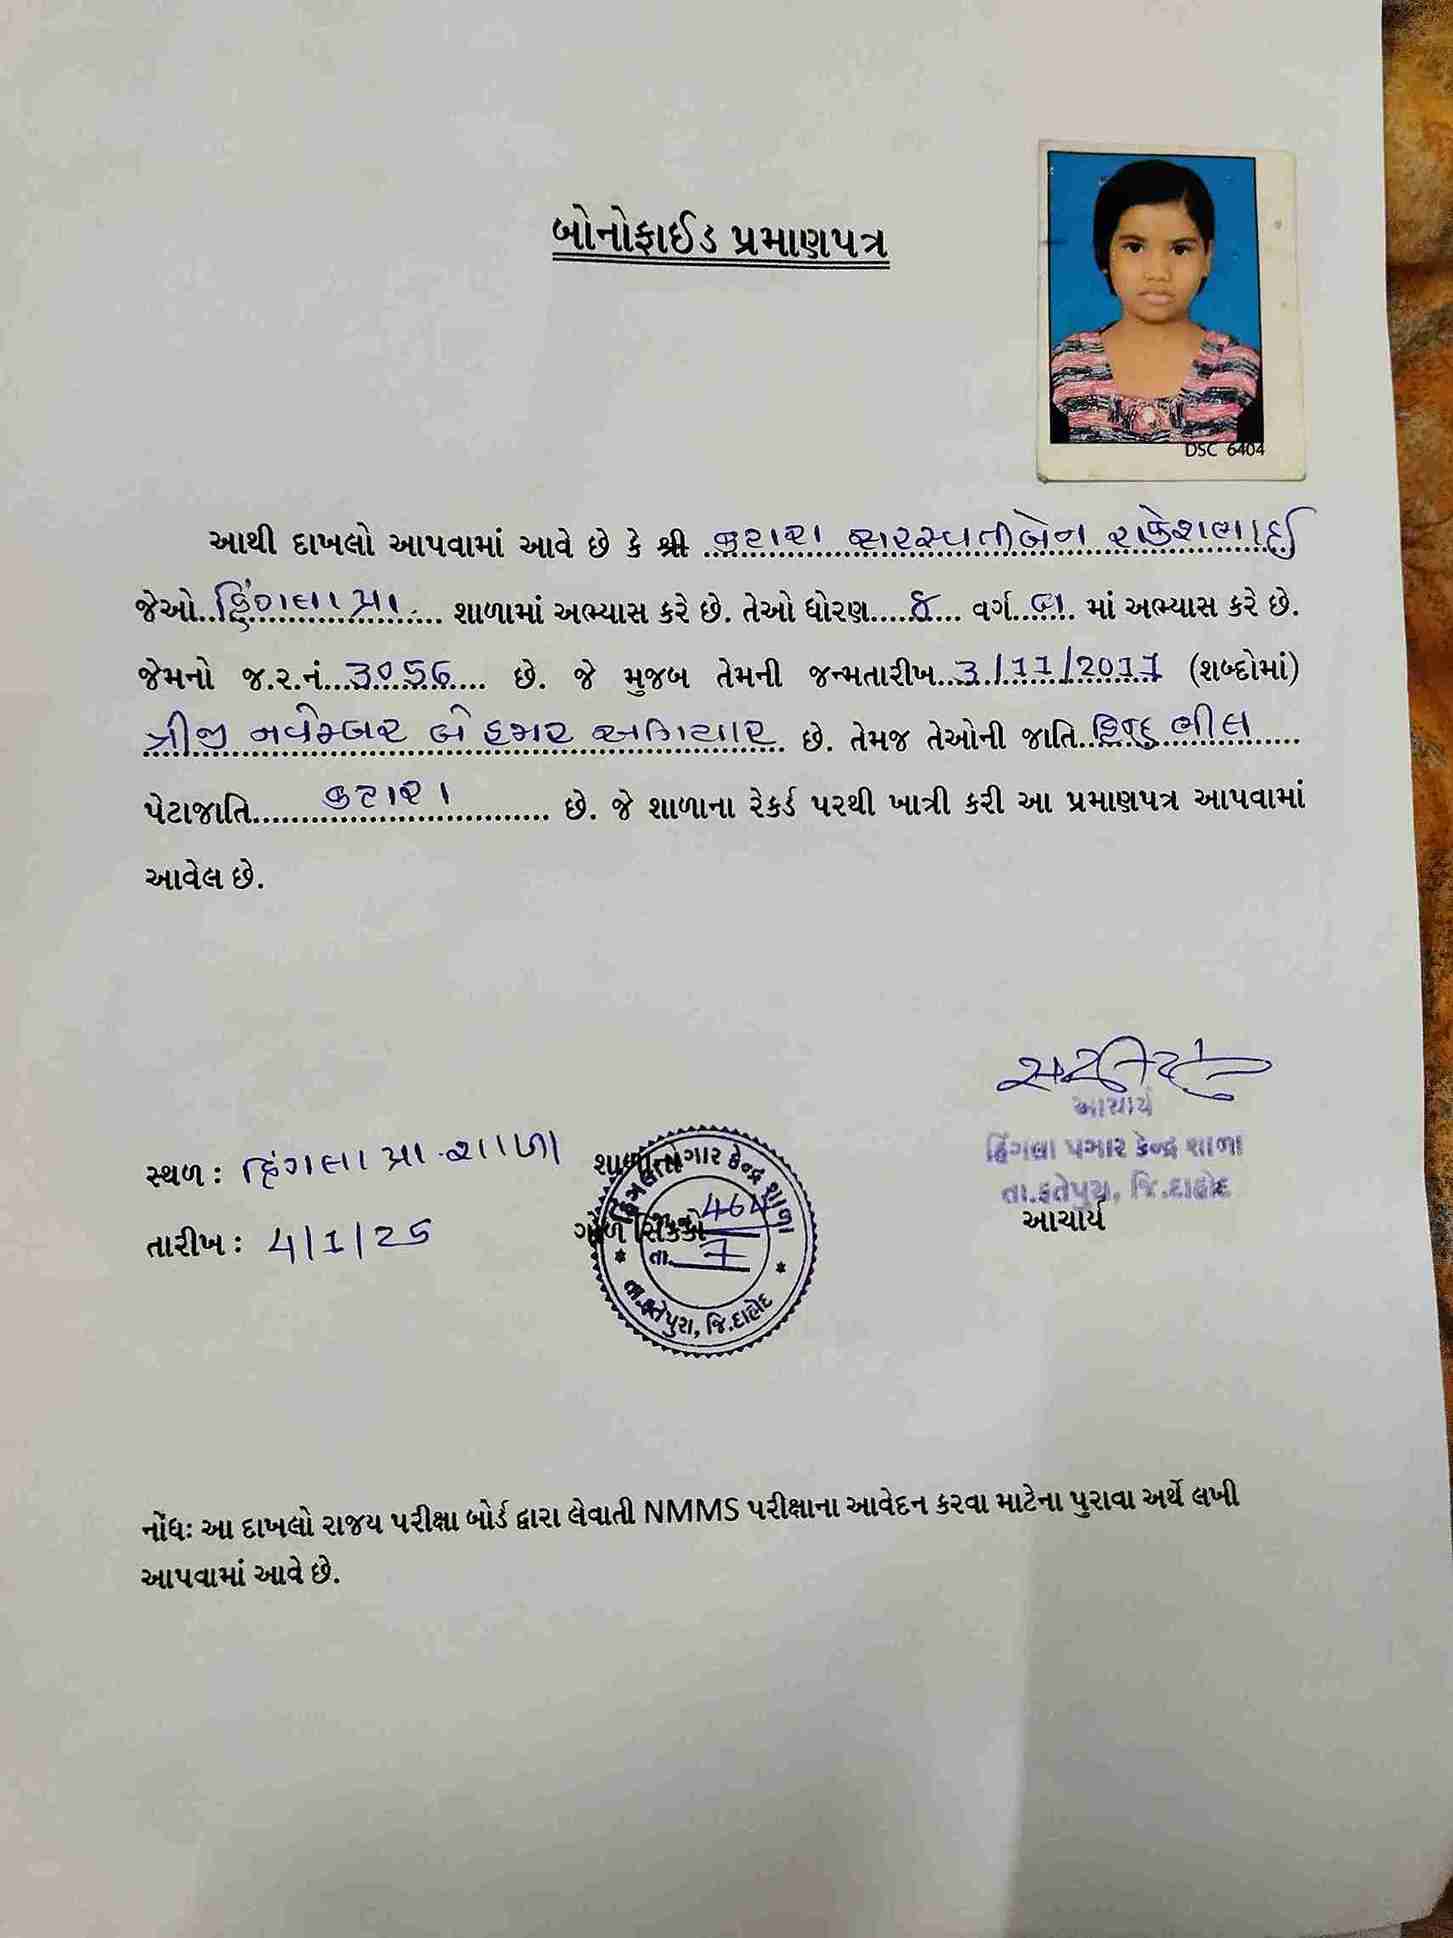 બોનોફાઈડ પ્રમાણપત્ર
DSC 6404
આથી દાખલો આપવામાં આવે છે કે શ્રી કટારા સરસ્વતીબેન રાકેશભાઈ
જેઓ..હિંગલા પ્રા..... શાળામાં અભ્યાસ કરે છે. તેઓ ધોરણ.....8... વર્ગ..બ.. માં અભ્યાસ કરે છે.
જેમનો જ.ર.નં...3056... છે. જે મુજબ તેમની જન્મતારીખ..3/11/2011 (શબ્દોમાં)
ત્રીજી નવેમ્બર બે હજાર અગિયાર છે. તેમજ તેઓની જાતિ..હિન્દુ ભીલ......
પેટાજાતિ......કટારા......... છે. જે શાળાના રેકર્ડ પરથી ખાત્રી કરી આ પ્રમાણપત્ર આપવામાં
આવેલ છે.
આચાર્ય
હિંગલા પગાર કેન્દ્ર શાળા
તા.ફતેપુરા, જિ.દાહોદ
આચાર્ય
સ્થળ : હિંગલા પ્રા.શાળા
તારીખ : 4/1/25
હિંગલા પગાર કેન્દ્ર શાળા
ગોળ સિક્કો
464
તા. 7
તા.ફતેપુરા, જિ.દાહોદ
નોંધઃ આ દાખલો રાજય પરીક્ષા બોર્ડ દ્વારા લેવાતી NMMS પરીક્ષાના આવેદન કરવા માટેના પુરાવા અર્થે લખી
આપવામાં આવે છે.